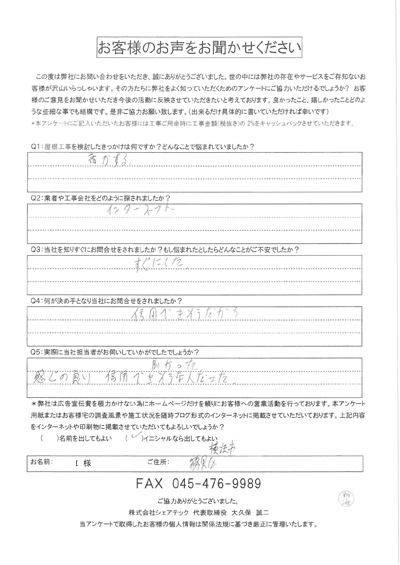 お客様のお声をお聞かせください
この度は弊社にお問い合わせをいただき、誠にありがとうございました。世の中には弊社の存在やサービスをご存知ないお
客様が沢山いらっしゃいます。その方たちに弊社をよく知っていただくためのアンケートにご協力いただけるでしょうか? お
客様のご意見をお聞かせいただき今後の活動に反映させていただきたいと考えております。良かったこと、嬉しかったことどのよ
うな些細な事でも結構です。是非ご協力お願い致します。(出来るだけ具体的に書いていただければ幸いです)
*本アンケートにご記入いただいたお客様には工事ご用命時に工事金額(税抜き)の2%をキャッシュバックさせていただきます。
Q1:屋根工事を検討したきっかけは何ですか?どんなことで悩まれていましたか?
音がする。
Q2:業者や工事会社をどのように探されましたか?
インターネット
Q3:当社を知りすぐにお問合せをされましたか?もし悩まれたとしたらどんなことがご不安でしたか?
すぐにした。
Q4:何が決め手となり当社にお問合せをされましたか?
信用できそうだから
Q5:実際に当社担当者がお伺いしていかがでしたでしょうか?
良かった
感じの良い 信用できそうな人だった。
*弊社は広告宣伝費を極力かけない為にホームページだけを頼りにお客様への営業活動を行っております。本アンケート
用紙またはお客様宅の調査風景や施工状況を随時ブログ形式のインターネットに掲載させていただいております。上記内容
をインターネットや印刷物に掲載させていただいてもよろしいでしょうか?
( )名前を出してもよい (✓)イニシャルなら出してもよい
横浜市
お名前: I 様 ご住所: 鶴見区
FAX 045-476-9989
ご協力ありがとうございました。
株式会社シェアテック 代表取締役 大久保 誠二
当アンケートで取得したお客様の個人情報は関係法規に基づき厳正に管理いたします。